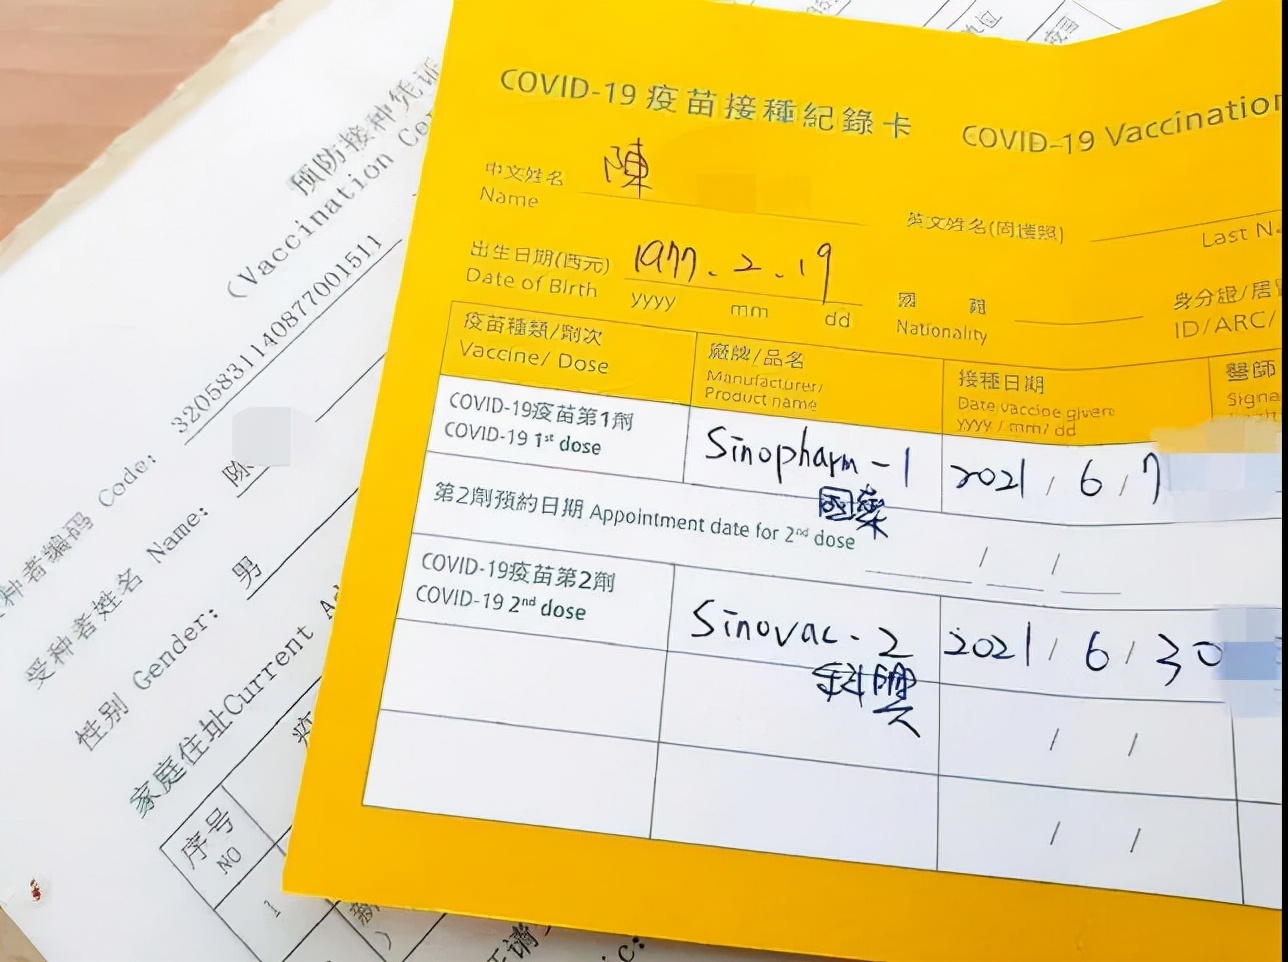 COVID-19 疫苗接種紀錄卡 COVID-19 Vaccination
中文姓名 陳
Name
英文姓名(同護照)
Last N
出生日期(西元) 1977.2.19
Date of Birth yyyy mm dd
國 籍
Nationality
身分證/居
ID/ARC/
疫苗種類/劑次
Vaccine/ Dose
廠牌/品名
Manufacturer/
Product name
接種日期
Date vaccine given
yyyy / mm/ dd
醫師
Signa
COVID-19疫苗第1劑
COVID-19 1st dose
Sinopharm-1
國藥
2021/6/7
第2劑預約日期 Appointment date for 2nd dose / /
COVID-19疫苗第2劑
COVID-19 2nd dose
Sinovac-2
科興
2021/6/30
/ /
/ /
预防接种凭证
(Vaccination Ce
种者编码 Code: 3205831140877001511
受种者姓名 Name: 陈
性别 Gender: 男
家庭住址Current A
序号
NO
1